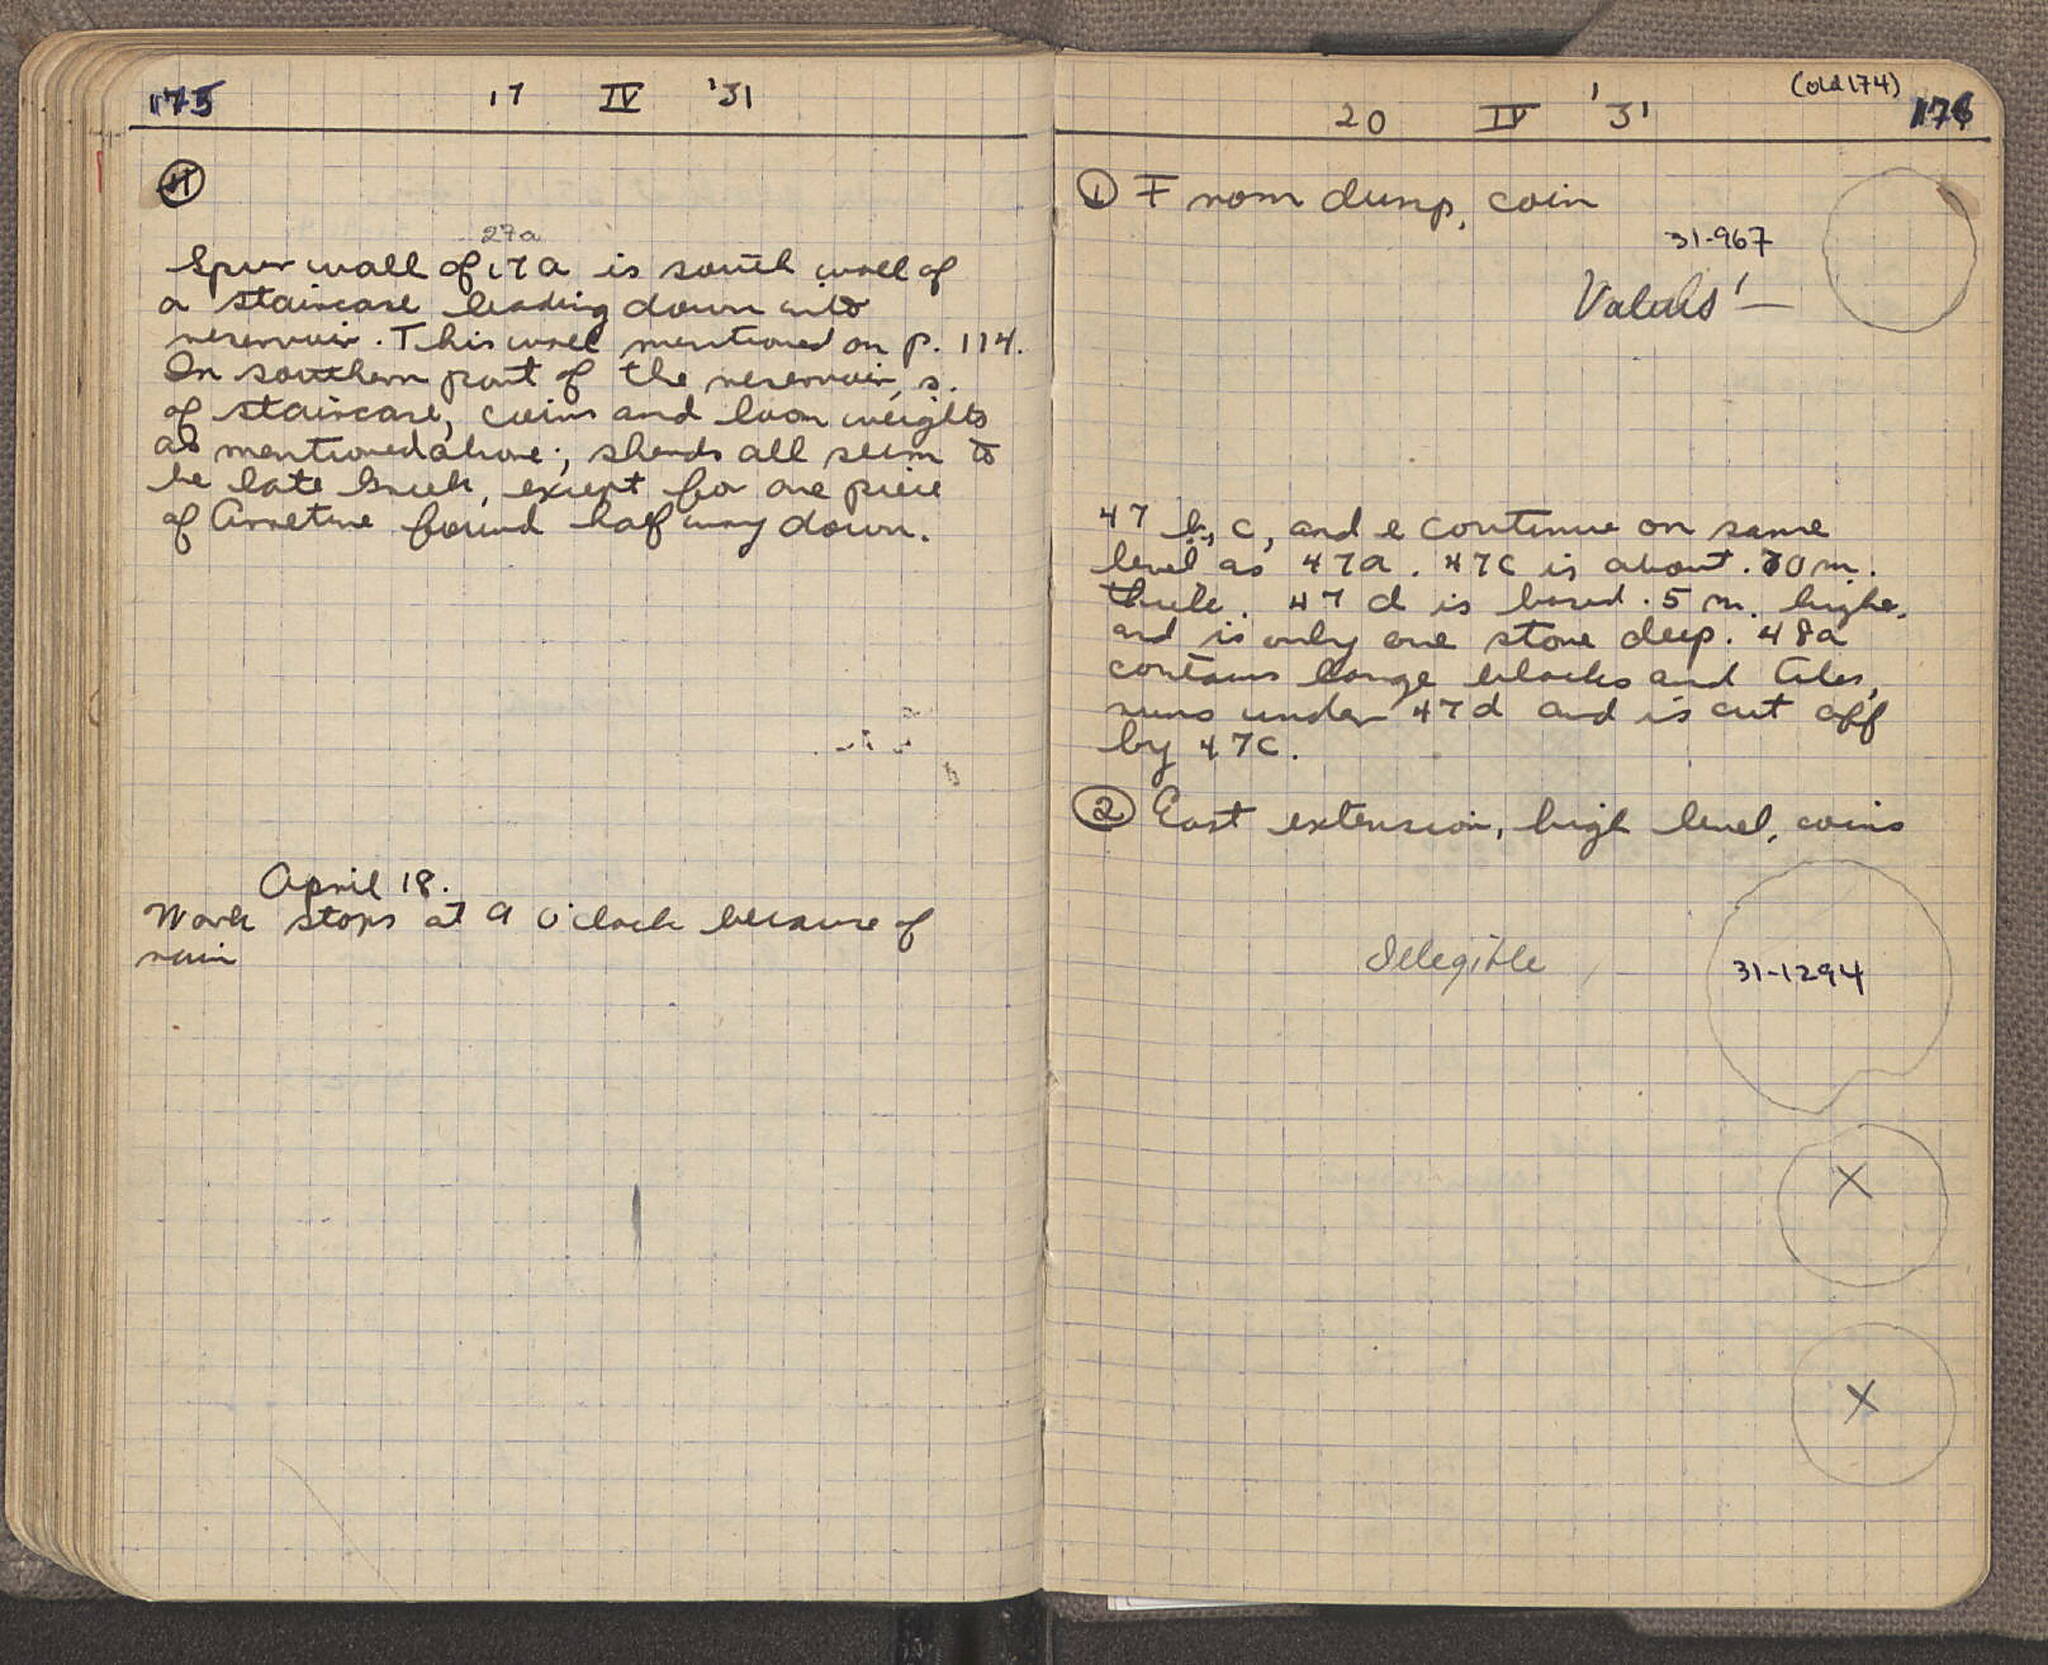 175
17 IV '31
27a
Spur wall of 17a is south wall of
a staircase leading down into
reservoir. This wall mentioned on p. 114.
In southern part of the reservoir, s.
of staircase, coins and loom weights
as mentioned above; sherds all seem to
be late Greek, except for one piece
of Arretine found half way down.
April 18.
Work stops at 9 o'clock because of
rain
(old 174)
176
20 IV '31
① From dump, coin
31-967
47 b, c, and e continue on same
level as 47a. 47c is about .70 m.
thick. 47 d is based .5 m. higher,
and is only one stone deep. 48a
contains large blocks and tiles,
runs under 47d and is cut off
by 47c.
② East extension, high level, coins
Illegible
31-1294
X
X